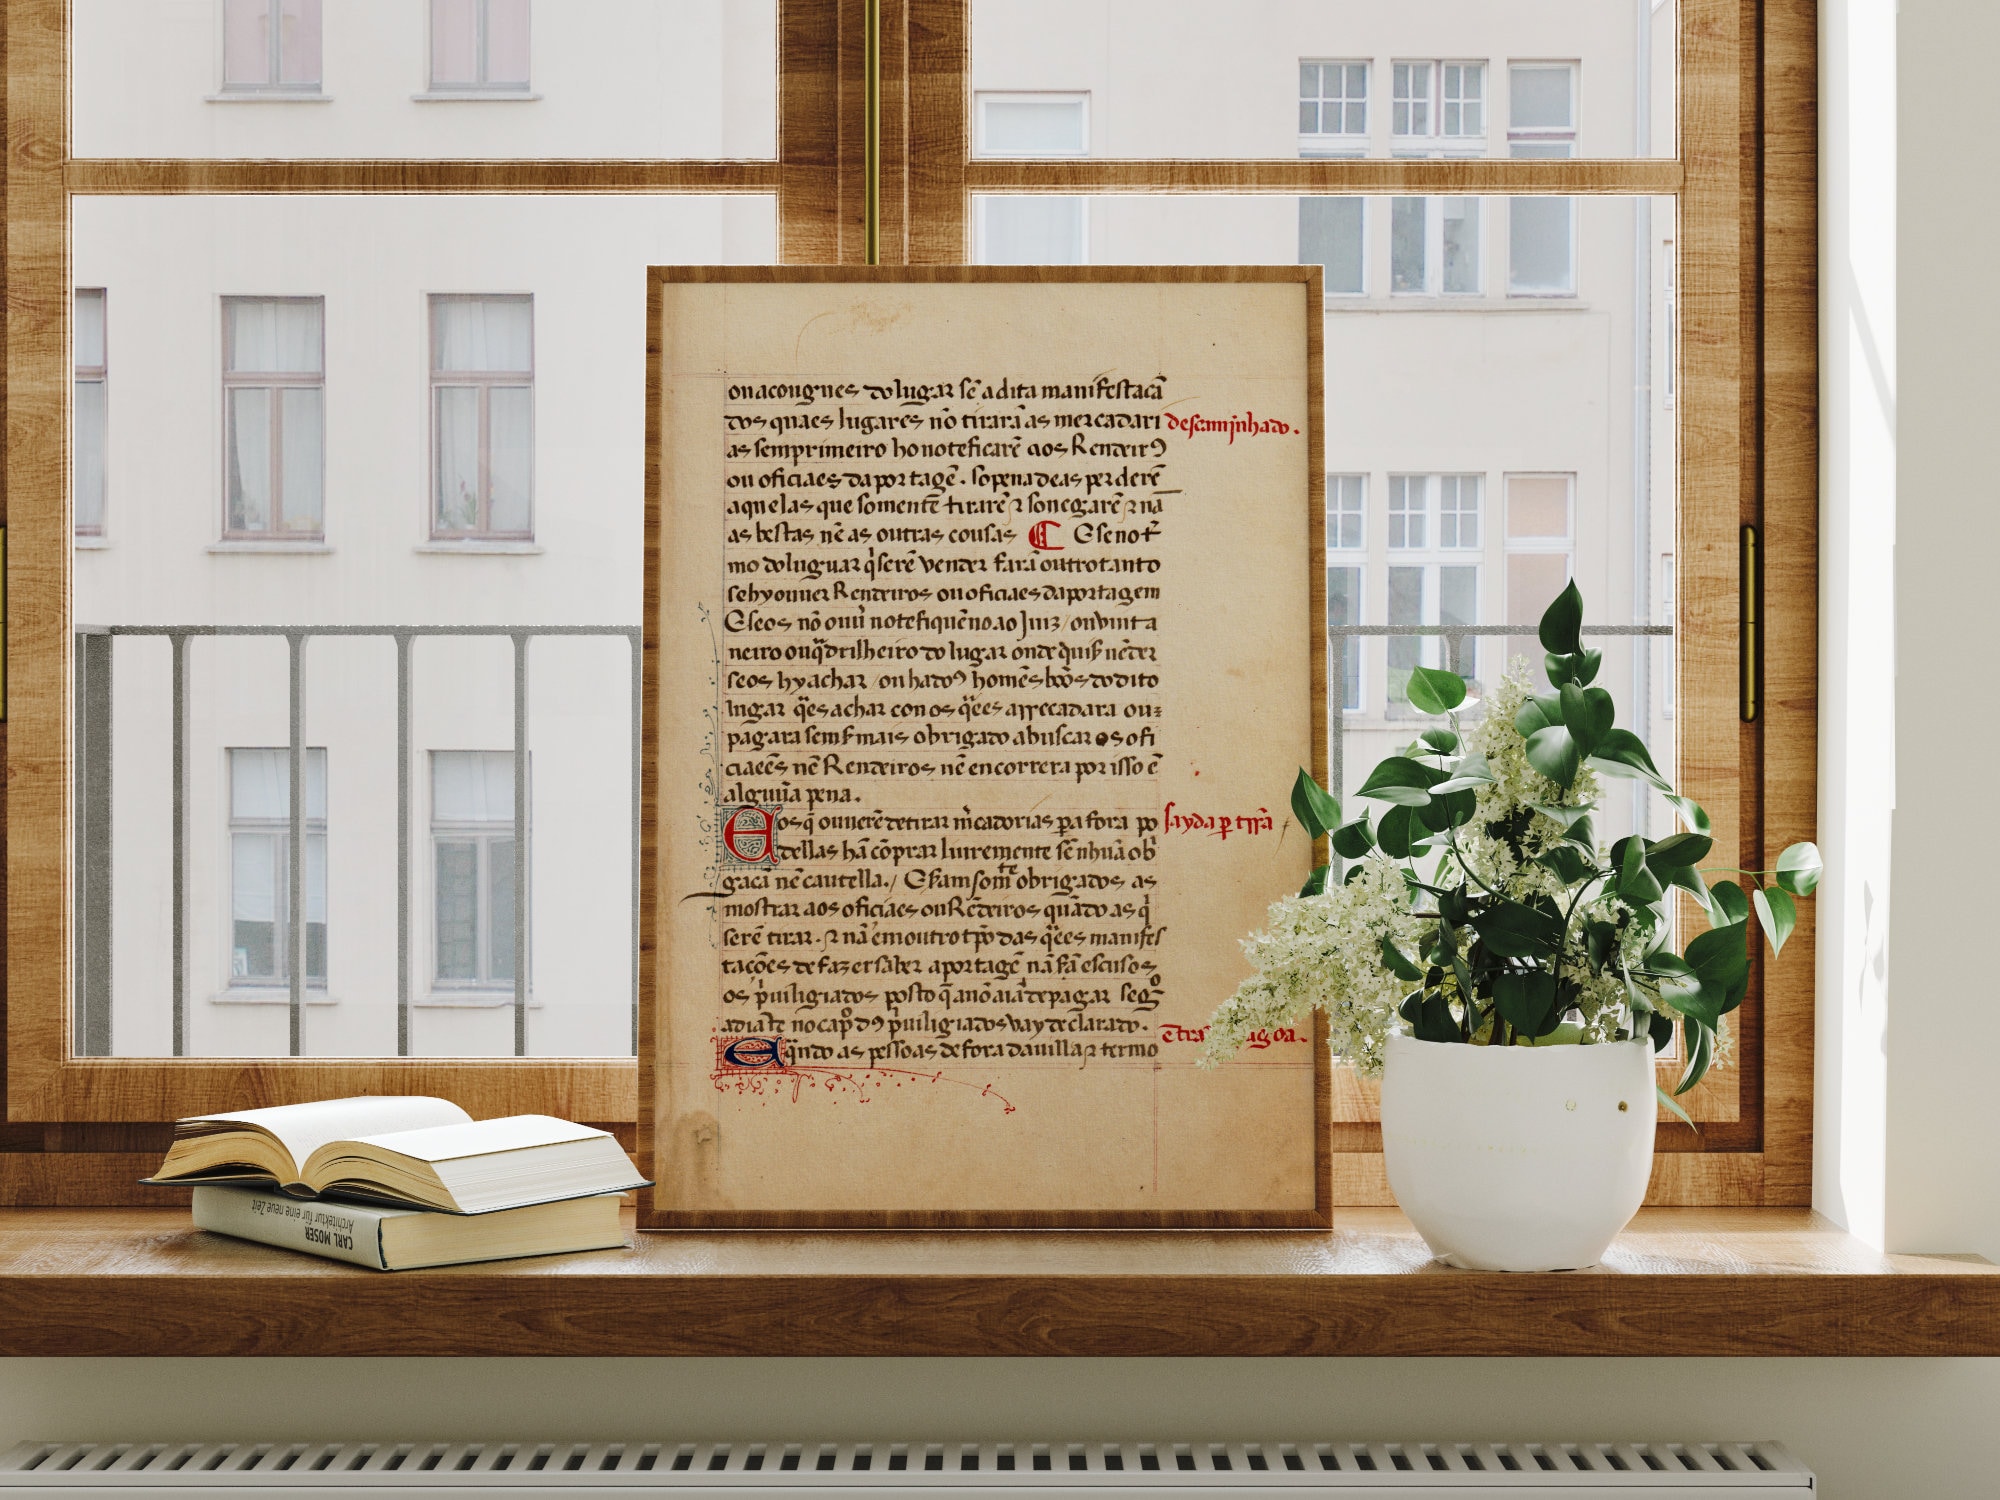 ou açougues do lugar sē a dita manifestacã
dos quaes lugares nõ tirarã as mercadari descaminhado.
as sem primeiro ho noteficarē aos Rendeirꝯ
ou oficiaes da portagē. so pena de as perderē
aquelas que somentē tirarē ⁊ sonegarē ⁊ nã
as bestas nē as outras cousas ¶ E se no t̃
mo do luguar q̃ serē vender farã outro tanto
se hy ouuer Rendeiros ou oficiaes da portagem
E se os nõ ouũ notefiquēno ao Juiz / ou vinta
neiro ou q̃drilheiro do lugar onde quiß uēder
se os hy achar / ou ha doꝯ homēs bõos do dito
lugar q̃ es achar con os q̃ēs arrecadara ou
pagara sem ß mais obrigado a buscar os ofi
ciaēs nē Rendeiros nē encorrera por isso ē
alguũa pena.
E os q̃ ouuerē de tirar m̃cadorias pa fora po sayda ꝑ trrã
dellas hã cõprar liuremente sē nhuã ob̃
gacã nē cautella./ E ßam somte obrigados as
mostrar aos oficiaes ou Rēdeiros quãdo as q̃
serē tirar. ⁊ nã em outro tp̃o das q̃ēs manifes
tações de fazer saber a portagē nã ßã escusos
os p̃uiligiados posto q̃ a nõ aiã de pagar segº
adiãte no capº dꝯ p̃uiligiados vay declarado.
E q̃ndo as pessoas de fora da uilla ⁊ termo ētra
CARL MOSER
Architektur für eine neue Zeit